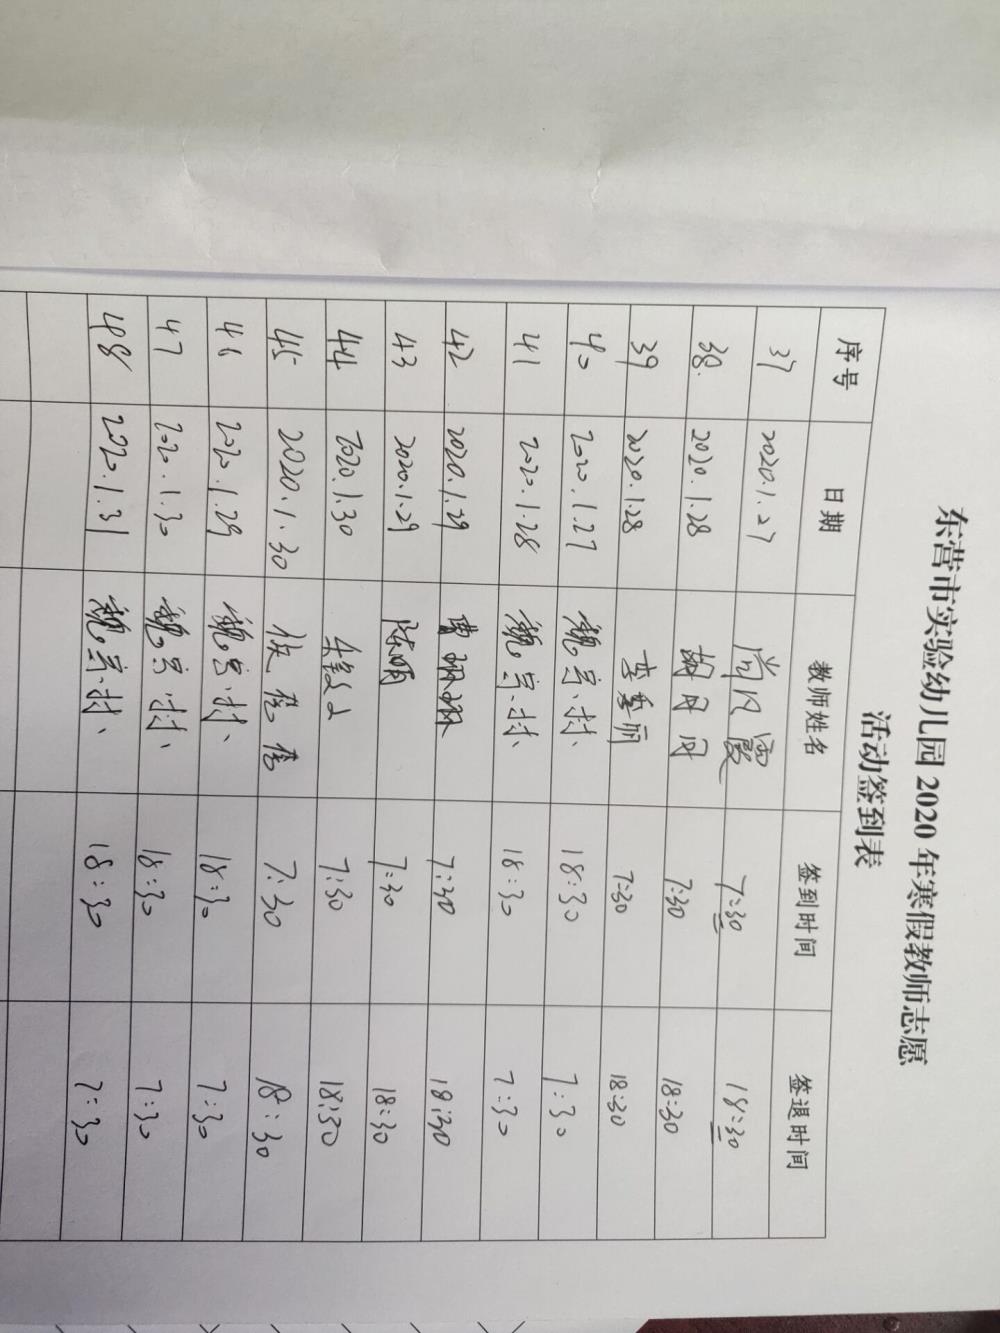 东营市实验幼儿园 2020 年寒假教师志愿
活动签到表
序号 日期 教师姓名 签到时间 签退时间
37 2020.1.27 尚凡霞 7:30 18:30
38. 2020.1.28 胡丹丹 7:30 18:30
39 2020.1.28 李秀丽 7:30 18:30
40 2020.1.27 魏宗村 18:30 7:30
41 2020.1.28 魏宗村 18:30 7:30
42 2020.1.29 曹珊珊 7:30 18:30
43 2020.1.29 陈丽 7:30 18:30
44 2020.1.30 7:30 18:30
45 2020.1.30 7:30 18:30
46 2020.1.29 魏宗村 18:30 7:30
47 2020.1.30 魏宗村 18:30 7:30
48 2020.1.31 魏宗村 18:30 7:30